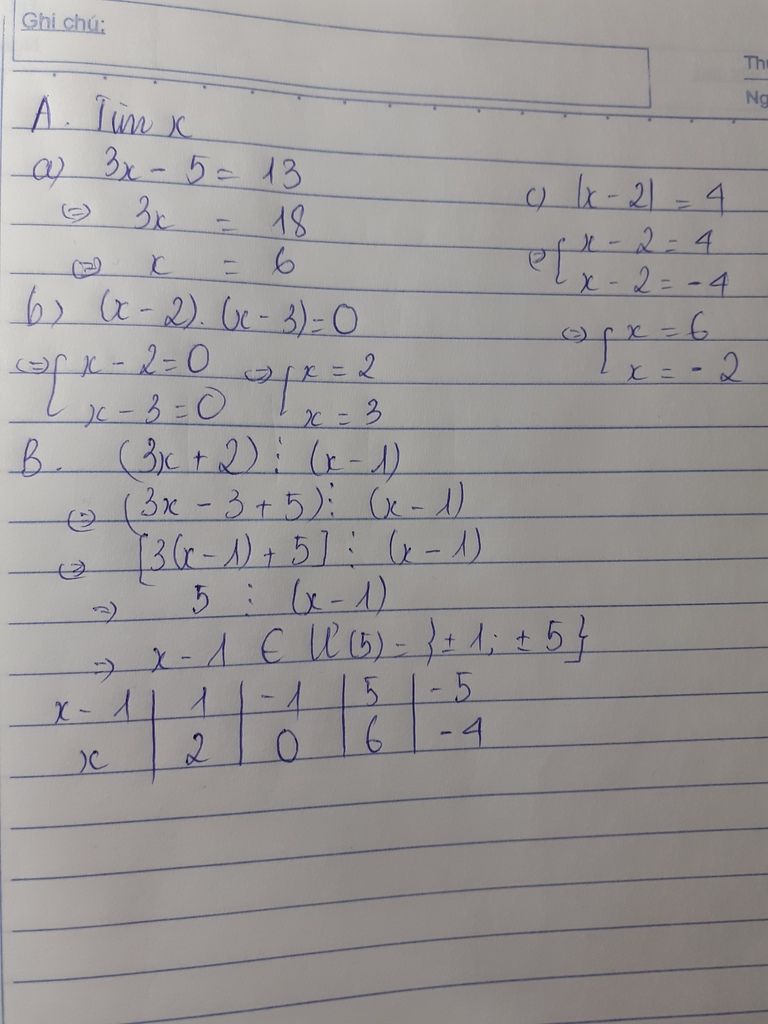 Ghi chú:
Thứ
Ng
A. Tìm x
a) 3x - 5 = 13
⇔ 3x = 18
⇔ x = 6
b) (x - 2). (x - 3) = 0
⇔ { x - 2 = 0 ⇔ { x = 2
x - 3 = 0 x = 3
c) |x - 2| = 4
⇔ { x - 2 = 4
x - 2 = -4
⇔ { x = 6
x = - 2
B. (3x + 2) ⋮ (x - 1)
⇔ (3x - 3 + 5) ⋮ (x - 1)
⇔ [3(x - 1) + 5] ⋮ (x - 1)
⇒ 5 ⋮ (x - 1)
⇒ x - 1 ∈ Ư(5) = {± 1; ± 5}
x - 1 | 1 | -1 | 5 | -5
x | 2 | 0 | 6 | -4